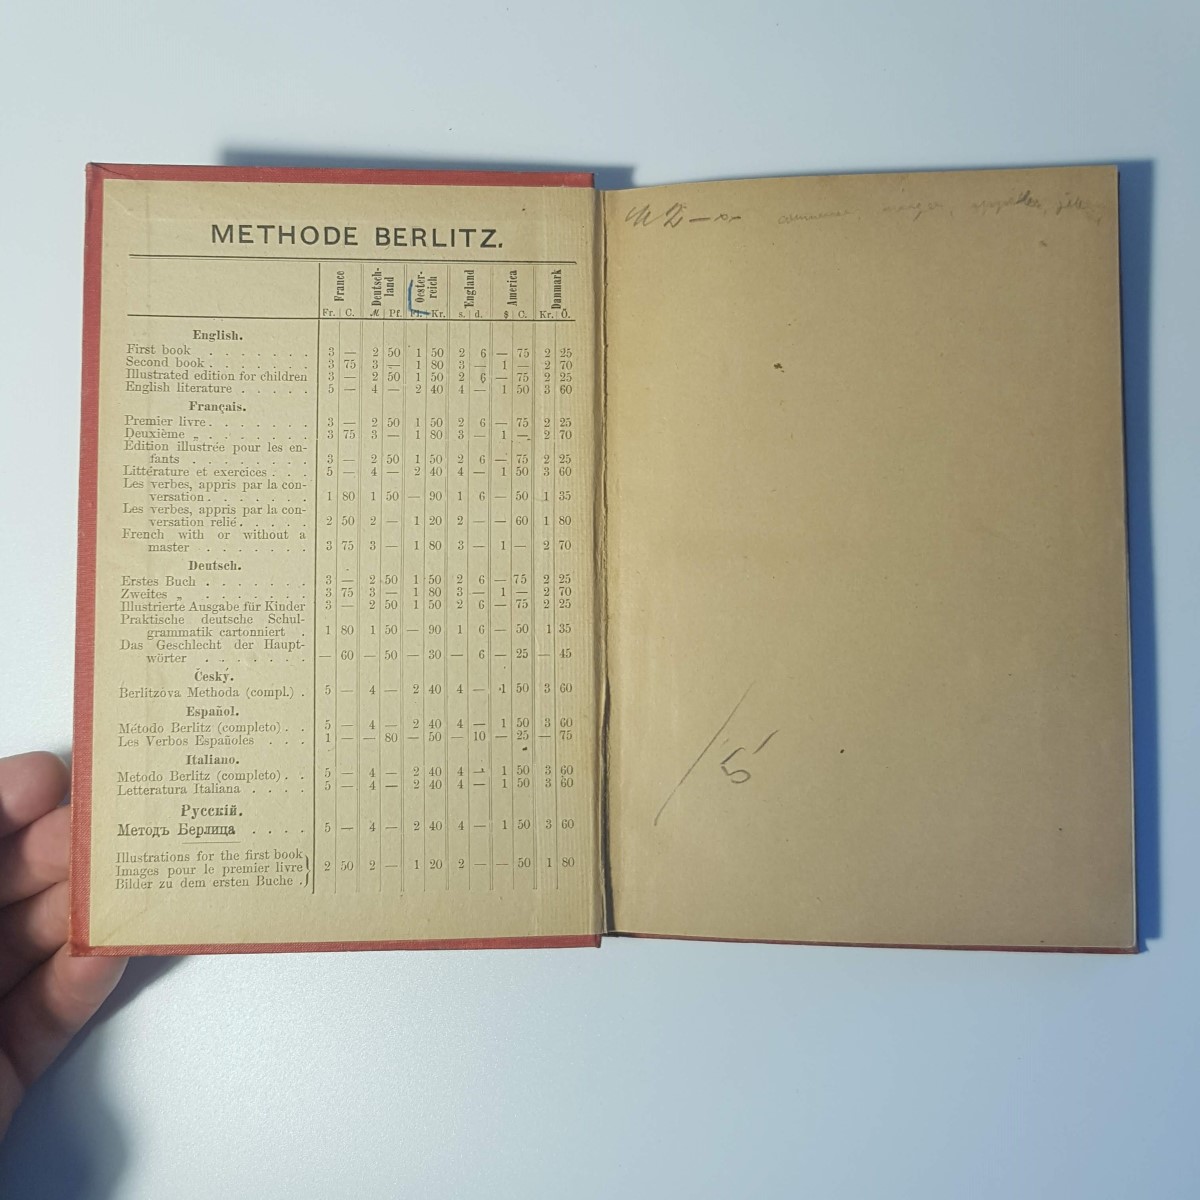 METHODE BERLITZ.
France Deutsch-land Oester-reich England America Danmark
Fr. C. M Pf. Fl. Kr. s. d. $ C. Kr. Ö.
English.
First book . . . . . . . 3 — 2 50 1 50 2 6 — 75 2 25
Second book . . . . . . . 3 75 3 — 1 80 3 — 1 — 2 70
Illustrated edition for children 3 — 2 50 1 50 2 6 — 75 2 25
English literature . . . . . 5 — 4 — 2 40 4 — 1 50 3 60
Français.
Premier livre . . . . . . . 3 — 2 50 1 50 2 6 — 75 2 25
Deuxième „ . . . . . . . 3 75 3 — 1 80 3 — 1 — 2 70
Edition illustrée pour les en-
fants . . . . . . . . 3 — 2 50 1 50 2 6 — 75 2 25
Littérature et exercices . . . 5 — 4 — 2 40 4 — 1 50 3 60
Les verbes, appris par la con-
versation . . . . . . . 1 80 1 50 — 90 1 6 — 50 1 35
Les verbes, appris par la con-
versation relié . . . . . 2 50 2 — 1 20 2 — — 60 1 80
French with or without a
master . . . . . . . 3 75 3 — 1 80 3 — 1 — 2 70
Deutsch.
Erstes Buch . . . . . . . 3 — 2 50 1 50 2 6 — 75 2 25
Zweites „ . . . . . . . 3 75 3 — 1 80 3 — 1 — 2 70
Illustrierte Ausgabe für Kinder 3 — 2 50 1 50 2 6 — 75 2 25
Praktische deutsche Schul-
grammatik cartonniert . 1 80 1 50 — 90 1 6 — 50 1 35
Das Geschlecht der Haupt-
wörter . . . . . . . — 60 — 50 — 30 — 6 — 25 — 45
Český.
Berlitzova Methoda (compl.) . 5 — 4 — 2 40 4 — 1 50 3 60
Español.
Método Berlitz (completo) . . 5 — 4 — 2 40 4 — 1 50 3 60
Les Verbos Españoles . . . 1 — — 80 — 50 — 10 — 25 — 75
Italiano.
Metodo Berlitz (completo) . . 5 — 4 — 2 40 4 — 1 50 3 60
Letteratura Italiana . . . . 5 — 4 — 2 40 4 — 1 50 3 60
Русскій.
Методъ Берлица . . . . 5 — 4 — 2 40 4 — 1 50 3 60
Illustrations for the first book
Images pour le premier livre } 2 50 2 — 1 20 2 — — 50 1 80
Bilder zu dem ersten Buche .